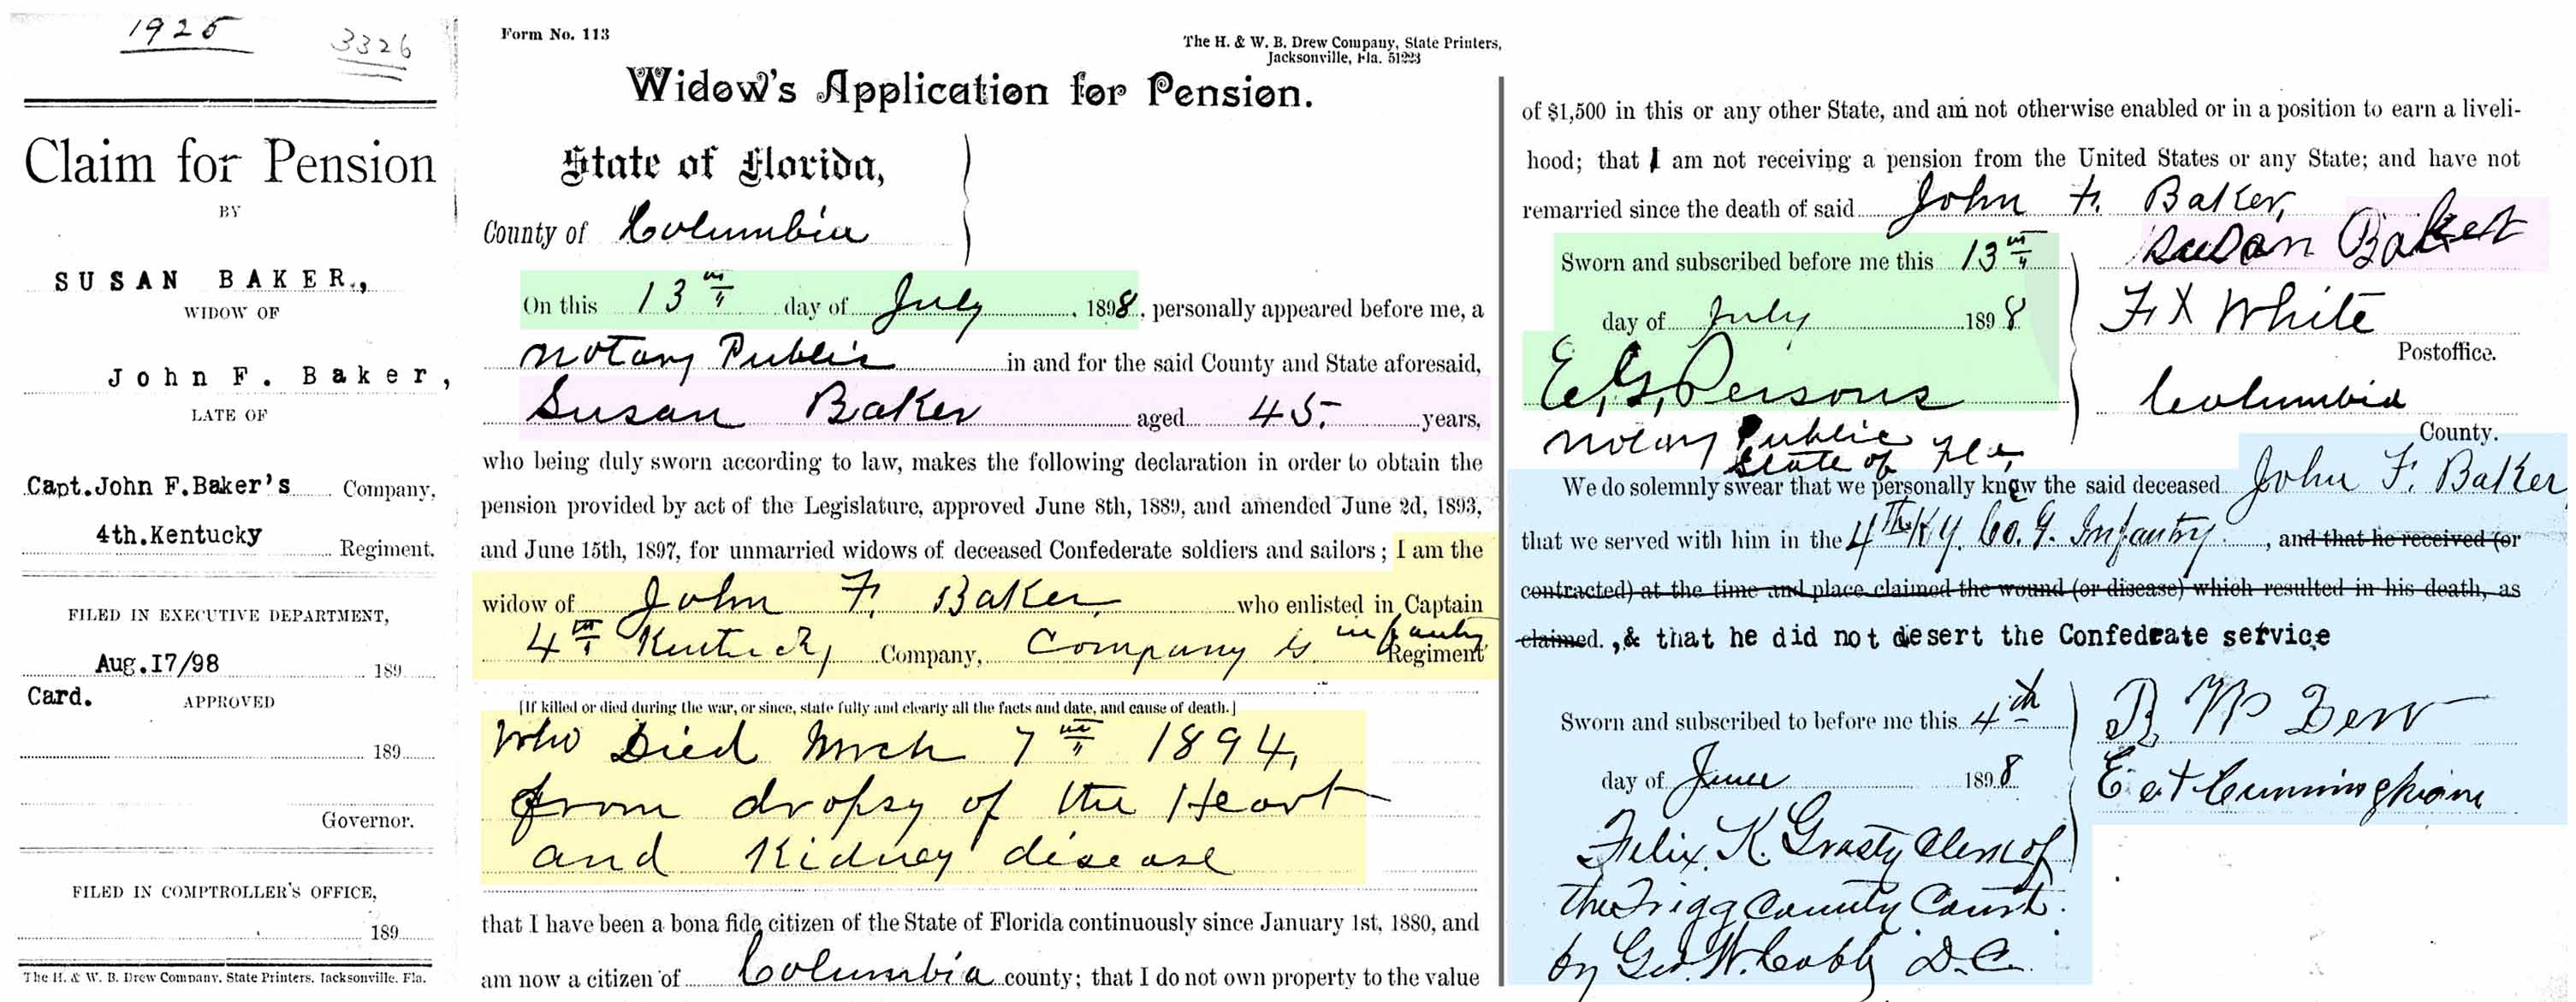 1925
3326
Claim for Pension
BY
SUSAN BAKER.,
WIDOW OF
John F. Baker,
LATE OF
Capt.John F.Baker's Company,
4th.Kentucky Regiment.
FILED IN EXECUTIVE DEPARTMENT,
Aug.I7/98 189
Card. APPROVED
189
Governor.
FILED IN COMPTROLLER'S OFFICE,
189
The H. & W. B. Drew Company, State Printers, Jacksonville, Fla.
Form No. 113
The H. & W. B. Drew Company, State Printers,
Jacksonville, Fla. 51223
Widow's Application for Pension.
State of Florida,
County of Columbia
On this 13th day of July, 1898, personally appeared before me, a
Notary Public in and for the said County and State aforesaid,
Susan Baker aged 45. years,
who being duly sworn according to law, makes the following declaration in order to obtain the
pension provided by act of the Legislature, approved June 8th, 1889, and amended June 2d, 1893,
and June 15th, 1897, for unmarried widows of deceased Confederate soldiers and sailors; I am the
widow of John F. Baker, who enlisted in Captain
4th Kentucky Company, Company infantry Regiment
[If killed or died during the war, or since, state fully and clearly all the facts and date, and cause of death.]
Who Died Mrch 7th 1894,
from dropsy of the Heart
and Kidney disease
that I have been a bona fide citizen of the State of Florida continuously since January 1st, 1880, and
am now a citizen of Columbia county; that I do not own property to the value
of $1,500 in this or any other State, and am not otherwise enabled or in a position to earn a liveli-
hood; that I am not receiving a pension from the United States or any State; and have not
remarried since the death of said John F. Baker,
Susan Baker
Sworn and subscribed before me this 13th
day of July 1898
F X White
Postoffice.
E. G. Persons
Columbia
County.
Notary Public
State of Fla,
We do solemnly swear that we personally knew the said deceased John F. Baker
that we served with him in the 4th Ky. Co. G. Infantry, and that he received (or
contracted) at the time and place claimed the wound (or disease) which resulted in his death, as
claimed. ,& that he did not desert the Confederate service
Sworn and subscribed to before me this 4th
day of June 1898
Cunningham
Felix K. Grasty Clerk of
the Trigg County Court.
by Geo. W. Cobb D.C.